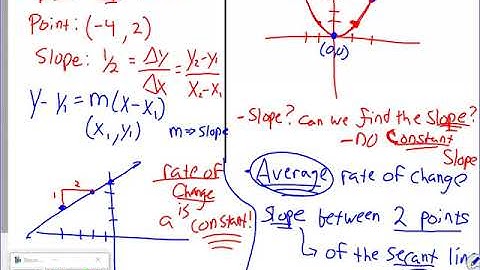 Point: (-4, 2)
Slope: 1/2 = Δy/Δx = y₂-y₁/x₂-x₁
y-y₁ = m(x-x₁)
(x₁, y₁)
m ⇒ slope
1
2
rate of
change
is
a constant!
(0,0)
- Slope? Can we find the Slope?
- DO Constant
Slope
• Average rate of change
Slope between 2 points
↳ of the secant lin